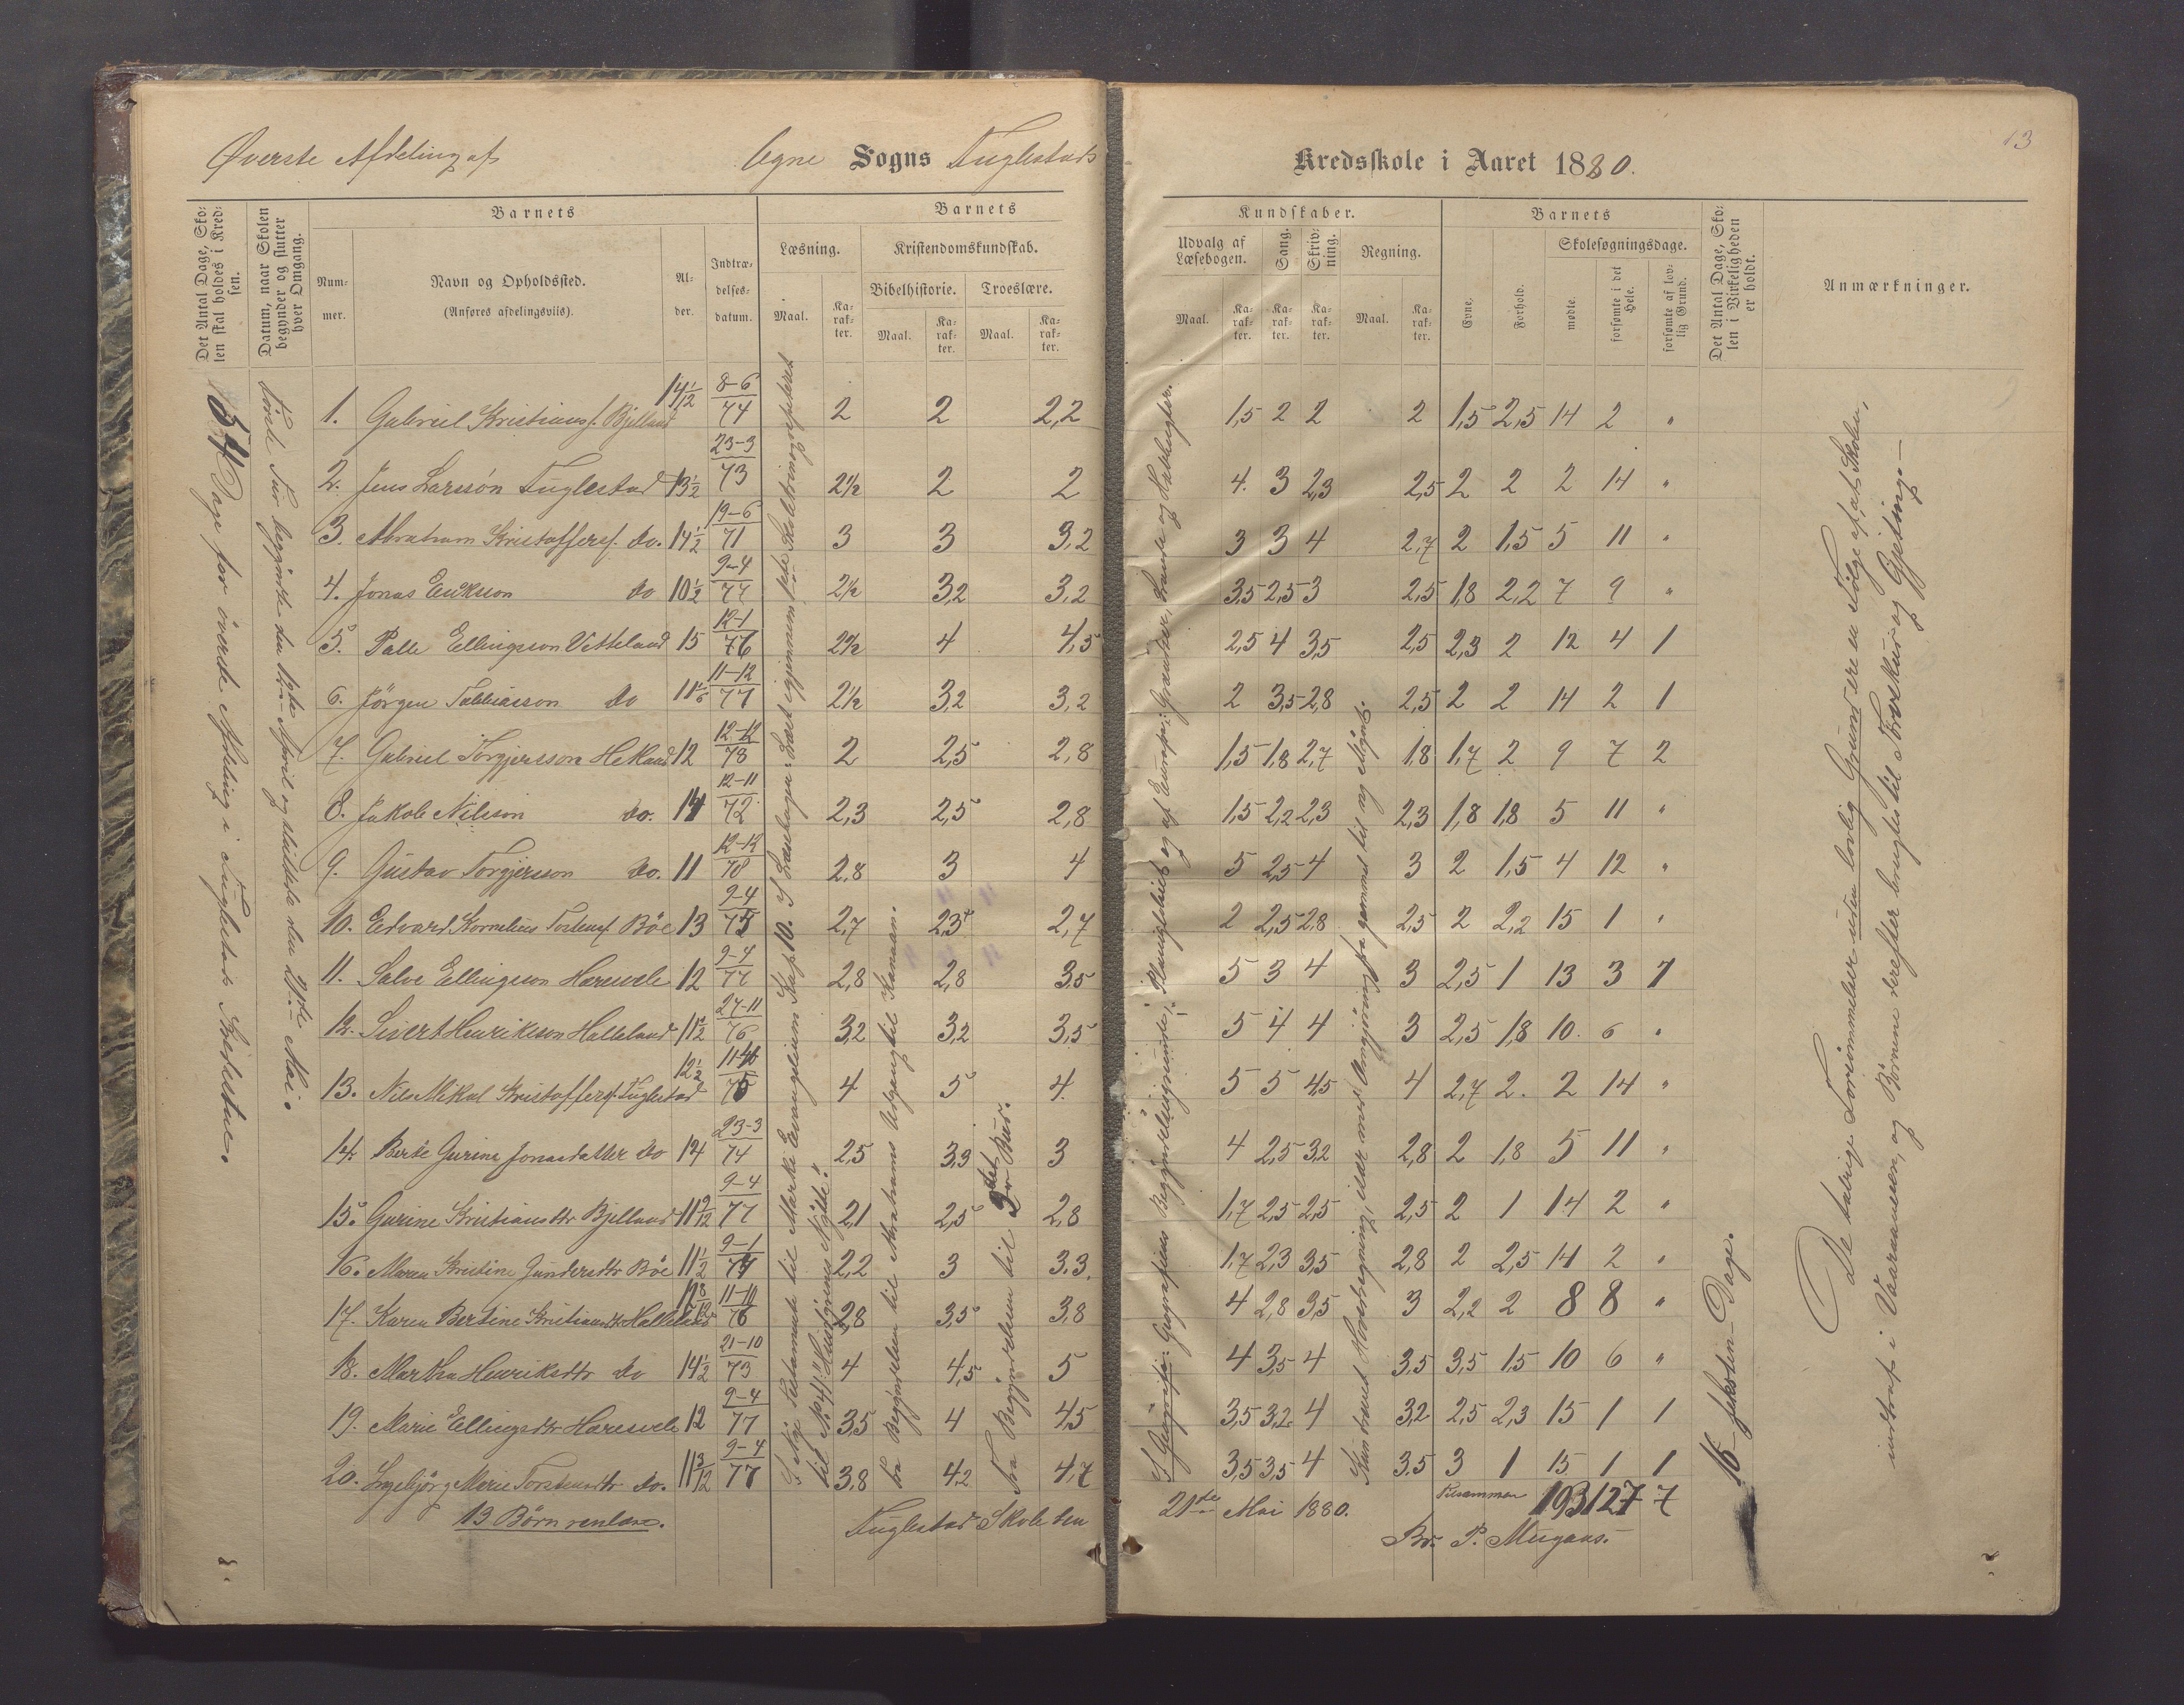 13
Øverste Afdeling af Ogne Sogns Fuglestads Kredsskole i Aaret 1880.
Det Antal Dage, Skolen skal holdes i Kredsen.
Datum, naar Skolen begynder og slutter hver Omgang.
Barnets
Nummer.
Navn og Opholdssted.
(Anføres afdelingsviis).
Alder.
Indtrædelsesdatum.
Barnets
Kundskaber.
Læsning.
Maal.
Karakter.
Kristendomskundskab.
Bibelhistorie.
Maal.
Karakter.
Troeslære.
Maal.
Karakter.
Udvalg af Læsebogen.
Maal.
Karakter.
Sang.
Karakter.
Skrivning.
Karakter.
Regning.
Maal.
Karakter.
Barnets
Evne.
Forhold.
Skolesøgningsdage.
mødte.
forsømte i det Hele.
forsømte af lovlig Grund.
Det Antal Dage, Skolen i Virkeligheden er holdt.
Anmærkninger.
54 Dage for øverste Afdeling i Fuglestads
1. Gabriel Kristians. Bjelland 14 1/12 8-6/74 2 2 2,2 1,5 2 2 2 1,5 2,5 14 2 "
2. Jens Larssøn Fuglestad 13 1/2 23-3/73 2 1/2 2 2 4. 3 2,3 2,5 2 2 2 14 "
3. Abraham Kristoffers. do. 14 1/2 19-6/71 3 3 3,2 3 3 4 2,7 2 1,5 5 11 "
4. Jonas Erikson do 10 1/2 9-4/77 2 1/2 3,2 3,2 3,5 2,5 3 2,5 1,8 2,2 7 9 "
5. Palle Ellingson Vetteland 15 12-1/76 2 1/2 4 4,5 2,5 4 3,5 2,5 2,3 2 12 4 1
6. Jörgen Tobiasson do 11 1/6 11-12/77 2 1/2 3,2 3,2 2 3,5 2,8 2,5 2 2 14 2 1
7. Gabriel Torgjersson 12 12-12/78 2 2,5 2,8 1,5 1,8 2,7 1,8 1,7 2 9 7 2
8. Jakob Nilsson do. 14 12-11/72 2,3 2,5 2,8 1,5 2,2 2,3 2,3 1,8 1,8 5 11 "
9. Gustav Torgjersson do. 11 12-12/78 2,8 3 4 5 2,5 4 3 2 1,5 4 12 "
10. Edvard Kornelius Böe 13 9-4/75 2,7 2,5 2,7 2 2,5 2,8 2,5 2 2,2 15 1 "
11. Salve Ellingson 12 9-4/77 2,8 2,8 3,5 5 3 4 3 2,5 1 13 3 1
12. Sivert Henrikson Halleland 11 1/2 27-11/76 3,2 3,2 3,5 5 4 4 3 2,5 1,8 10. 6 "
13. Nils Mikal Kristoffers. Fuglestad 12 1/2 4 5 4. 5 5 4,5 4 2,7 2. 2 14 "
14. Berte Gurine Jonasdatter do 14 23-3/74 2,5 3,3 3 4 2,5 3,2 2,8 2 1,8 5 11 "
15. Gurine Kristiansdtr Bjelland 11 9/12 9-4/77 2,1 2,5 2,8 1,7 2,5 2,5 2,5 2 1 14 2 "
16. Maren Kristine Gundersdtr Böe 11 1/2 9-1/77 2,2 3 3.3. 1,7 2,3 3,5 2,8 2 2,5 14 2 "
17. Karen Bertine Kristiansdtr Halleland 11-10/76 2,8 3,5 3,8 4 2,8 3,5 3 2,2 2 8 8 "
18. Martha Henriksdtr do 14 1/2 21-10/73 4 4,5 5 4 3,5 4 3,5 3,5 1,5 10 6 "
19. Marie Ellingsdtr 12 9-4/77 3,5 4 4,5 3,5 3,2 4 3,2 2,5 2,3 15 1 1
20. Ingebjörg Marie Torstensdtr do. 11 3/12 9-4/77 3,8 4,2 4,7 3,5 3,5 4 3.5 3 1 15 1 1
Tilsammen 193 127 7
Fra Begyndelsen til Abrahams Udgang til Kanaan.
Fra Begyndelsen til 2det Bud.
16 - seksten - Dage.
De talrige Forsömmelser uden lovlig Grund ere en Fölge af, at Skolen,
indtraf i Vaaraanen, og Börnene derefter brugtes til og Gjetning.
13 Børn
Fuglestad Skole den 21de Mai 1880.
P.